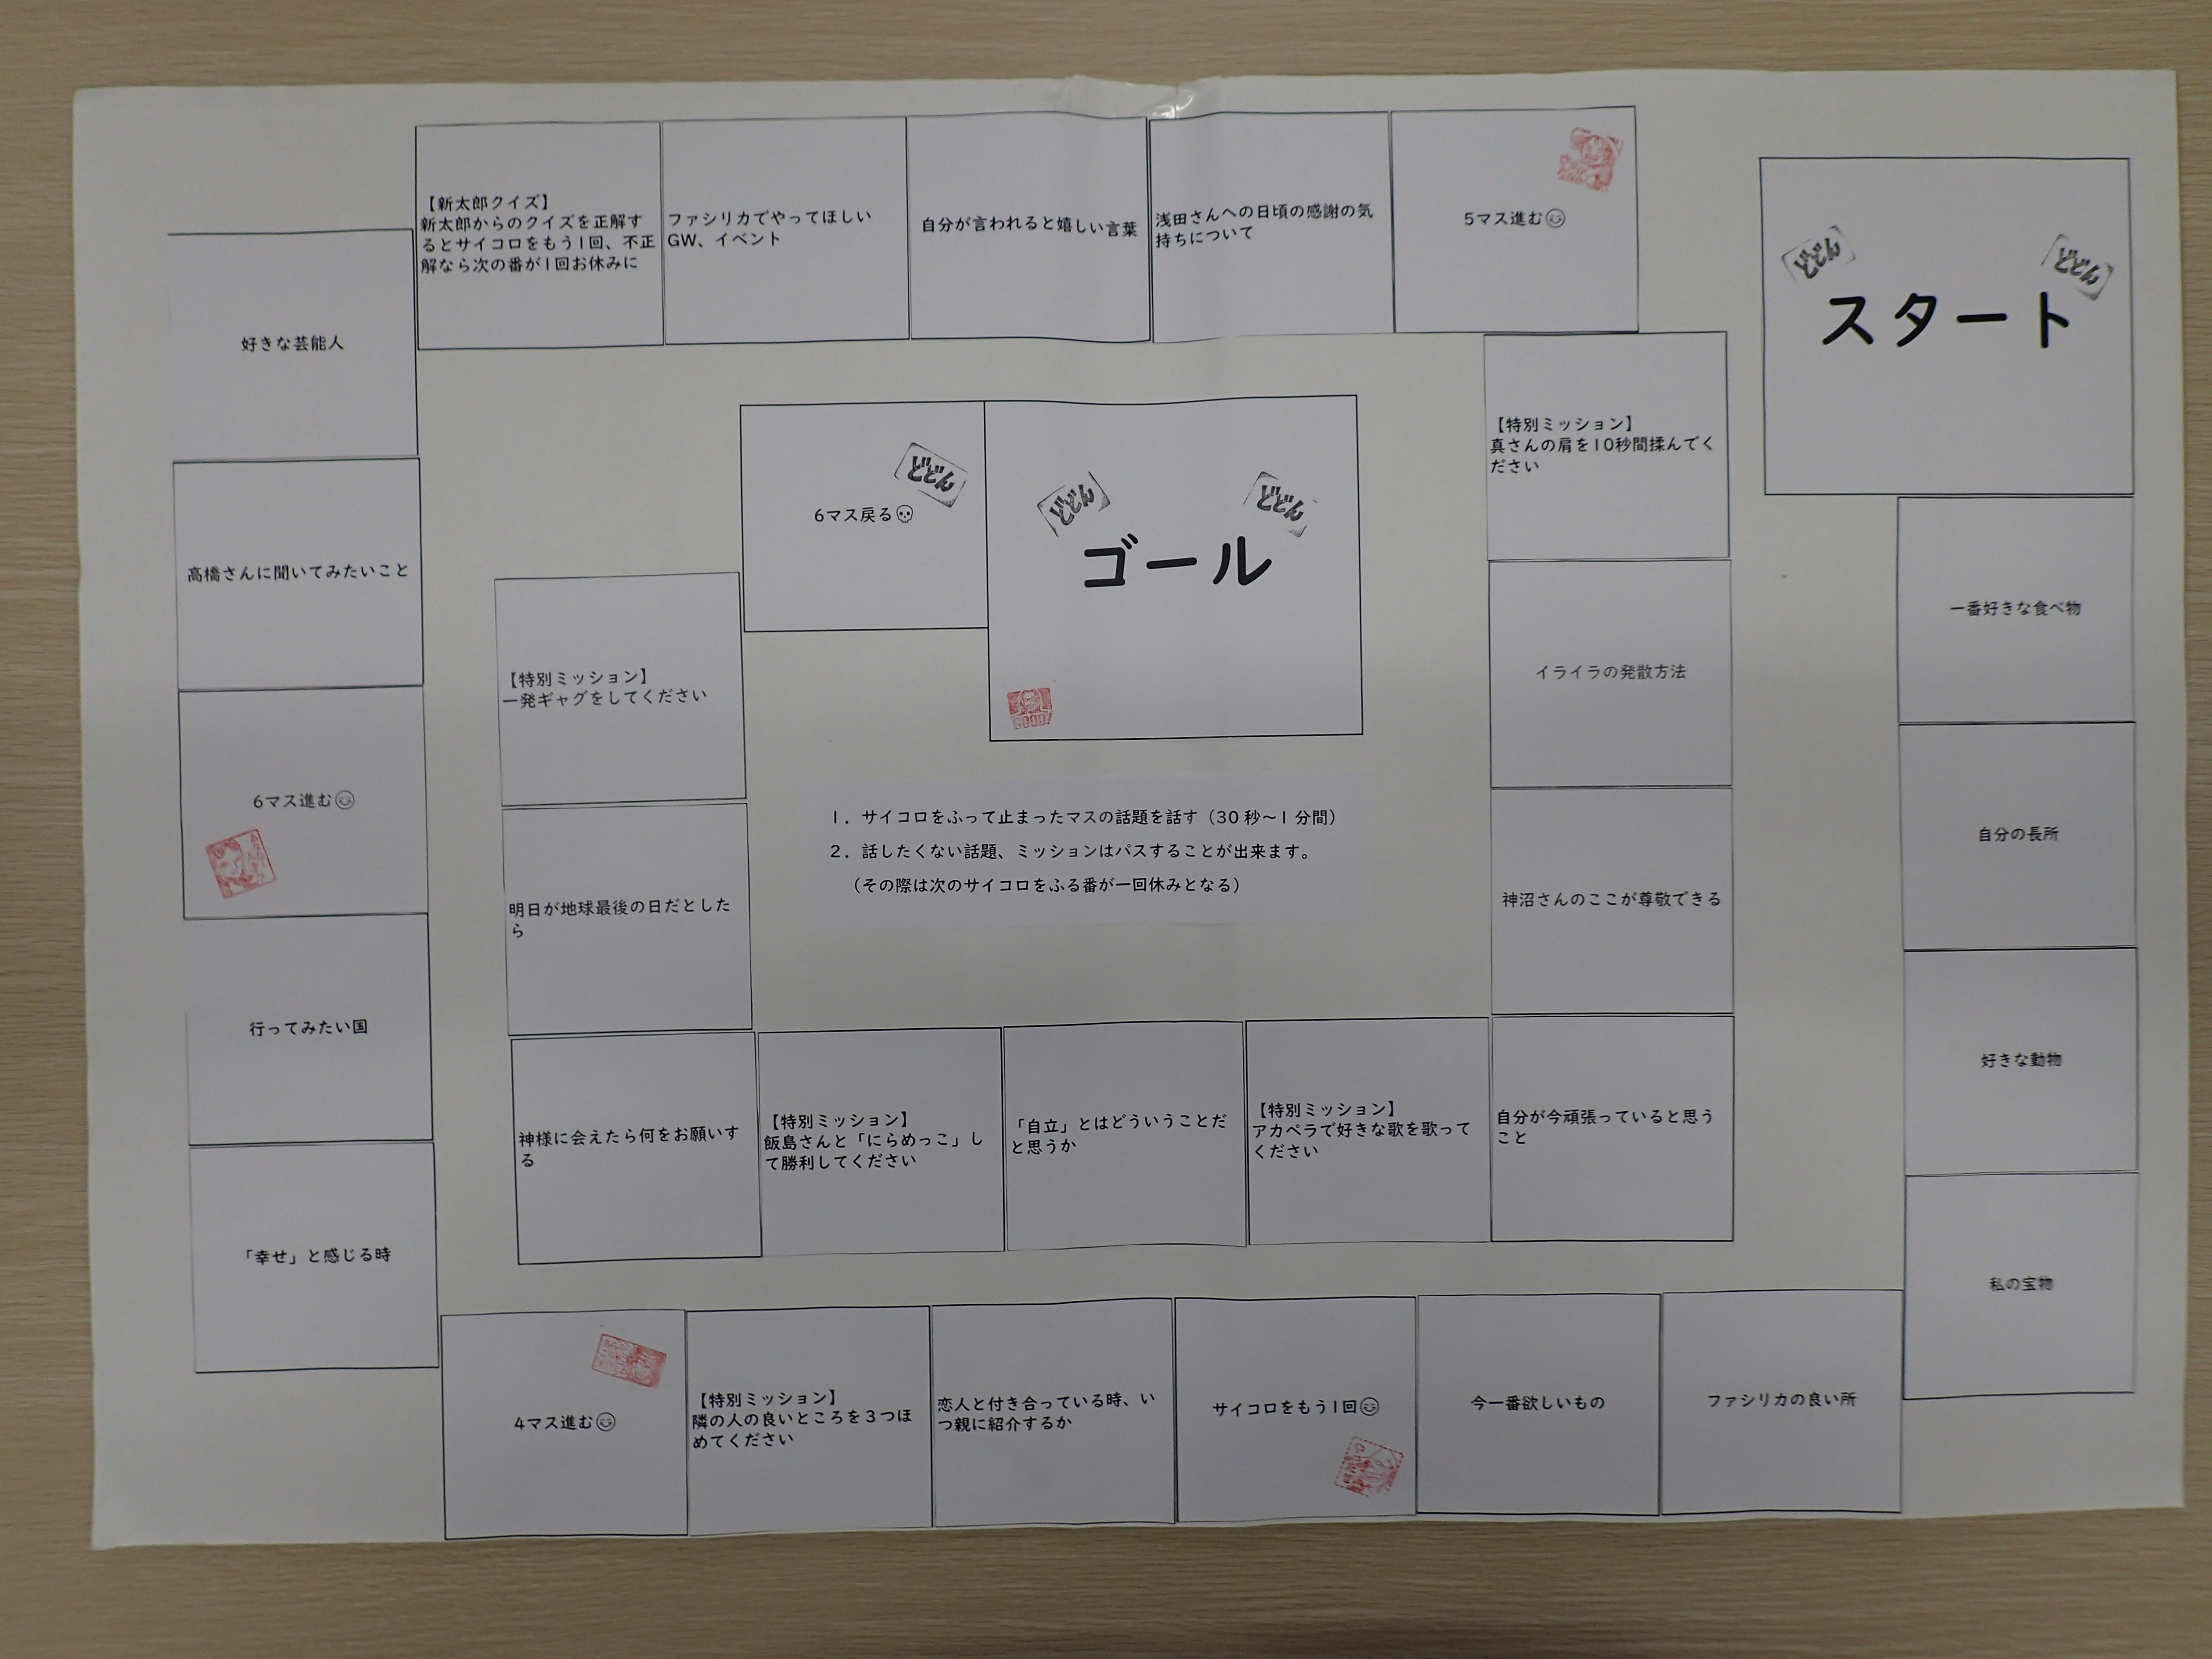 スタート
どどん
どどん
一番好きな食べ物
自分の長所
好きな動物
私の宝物
ファシリカの良い所
今一番欲しいもの
サイコロをもう1回
恋人と付き合っている時、い
つ親に紹介するか
【特別ミッション】
隣の人の良いところを３つほ
めてください
4マス進む
「幸せ」と感じる時
行ってみたい国
6マス進む
高橋さんに聞いてみたいこと
好きな芸能人
【新太郎クイズ】
新太郎からのクイズを正解す
るとサイコロをもう1回、不正
解なら次の番が1回お休みに
ファシリカでやってほしい
GW、イベント
自分が言われると嬉しい言葉
浅田さんへの日頃の感謝の気
持ちについて
5マス進む
【特別ミッション】
真さんの肩を10秒間揉んでく
ださい
イライラの発散方法
神沼さんのここが尊敬できる
自分が今頑張っていると思う
こと
【特別ミッション】
アカペラで好きな歌を歌って
ください
「自立」とはどういうことだ
と思うか
【特別ミッション】
飯島さんと「にらめっこ」し
て勝利してください
神様に会えたら何をお願いす
る
明日が地球最後の日だとした
ら
【特別ミッション】
一発ギャグをしてください
6マス戻る
どどん
どどん
どどん
ゴール
GOOD!
1．サイコロをふって止まったマスの話題を話す（30秒～1分間）
2．話したくない話題、ミッションはパスすることが出来ます。
（その際は次のサイコロをふる番が一回休みとなる）